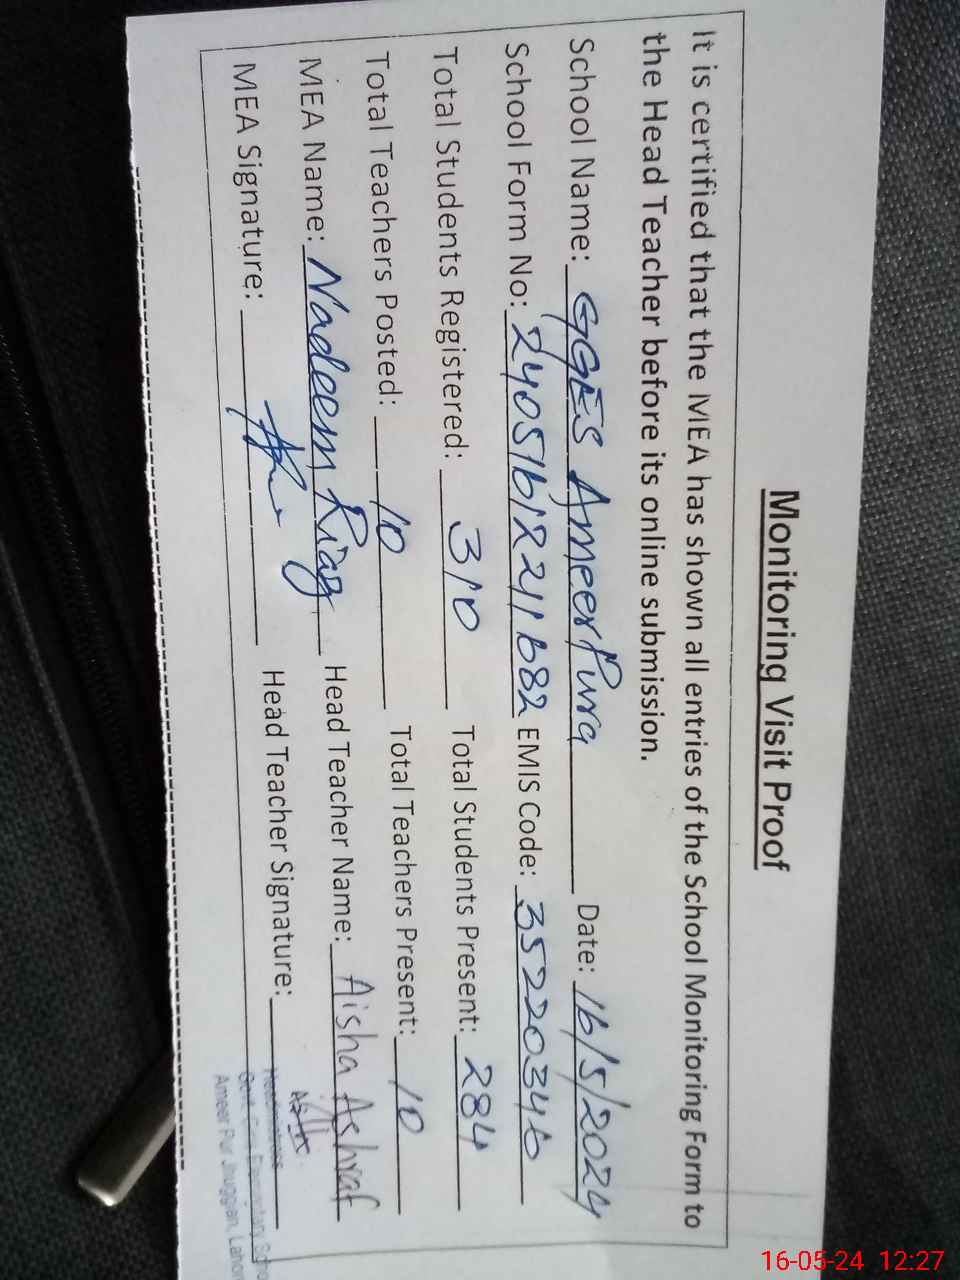 Monitoring Visit Proof
It is certified that the MEA has shown all entries of the School Monitoring Form to
the Head Teacher before its online submission.
School Name: GGES AmeerPura Date: 16/5/2024
School Form No: 240516122411682 EMIS Code: 35220346
Total Students Registered: 310 Total Students Present: 284
Total Teachers Posted: 10 Total Teachers Present: 10
MEA Name: Nadeem Riaz Head Teacher Name: Aisha Ashraf
MEA Signature: Head Teacher Signature:
Govt. Elementary
Ameer Pur Jhuggian, Lahor
16-05-24 12:27